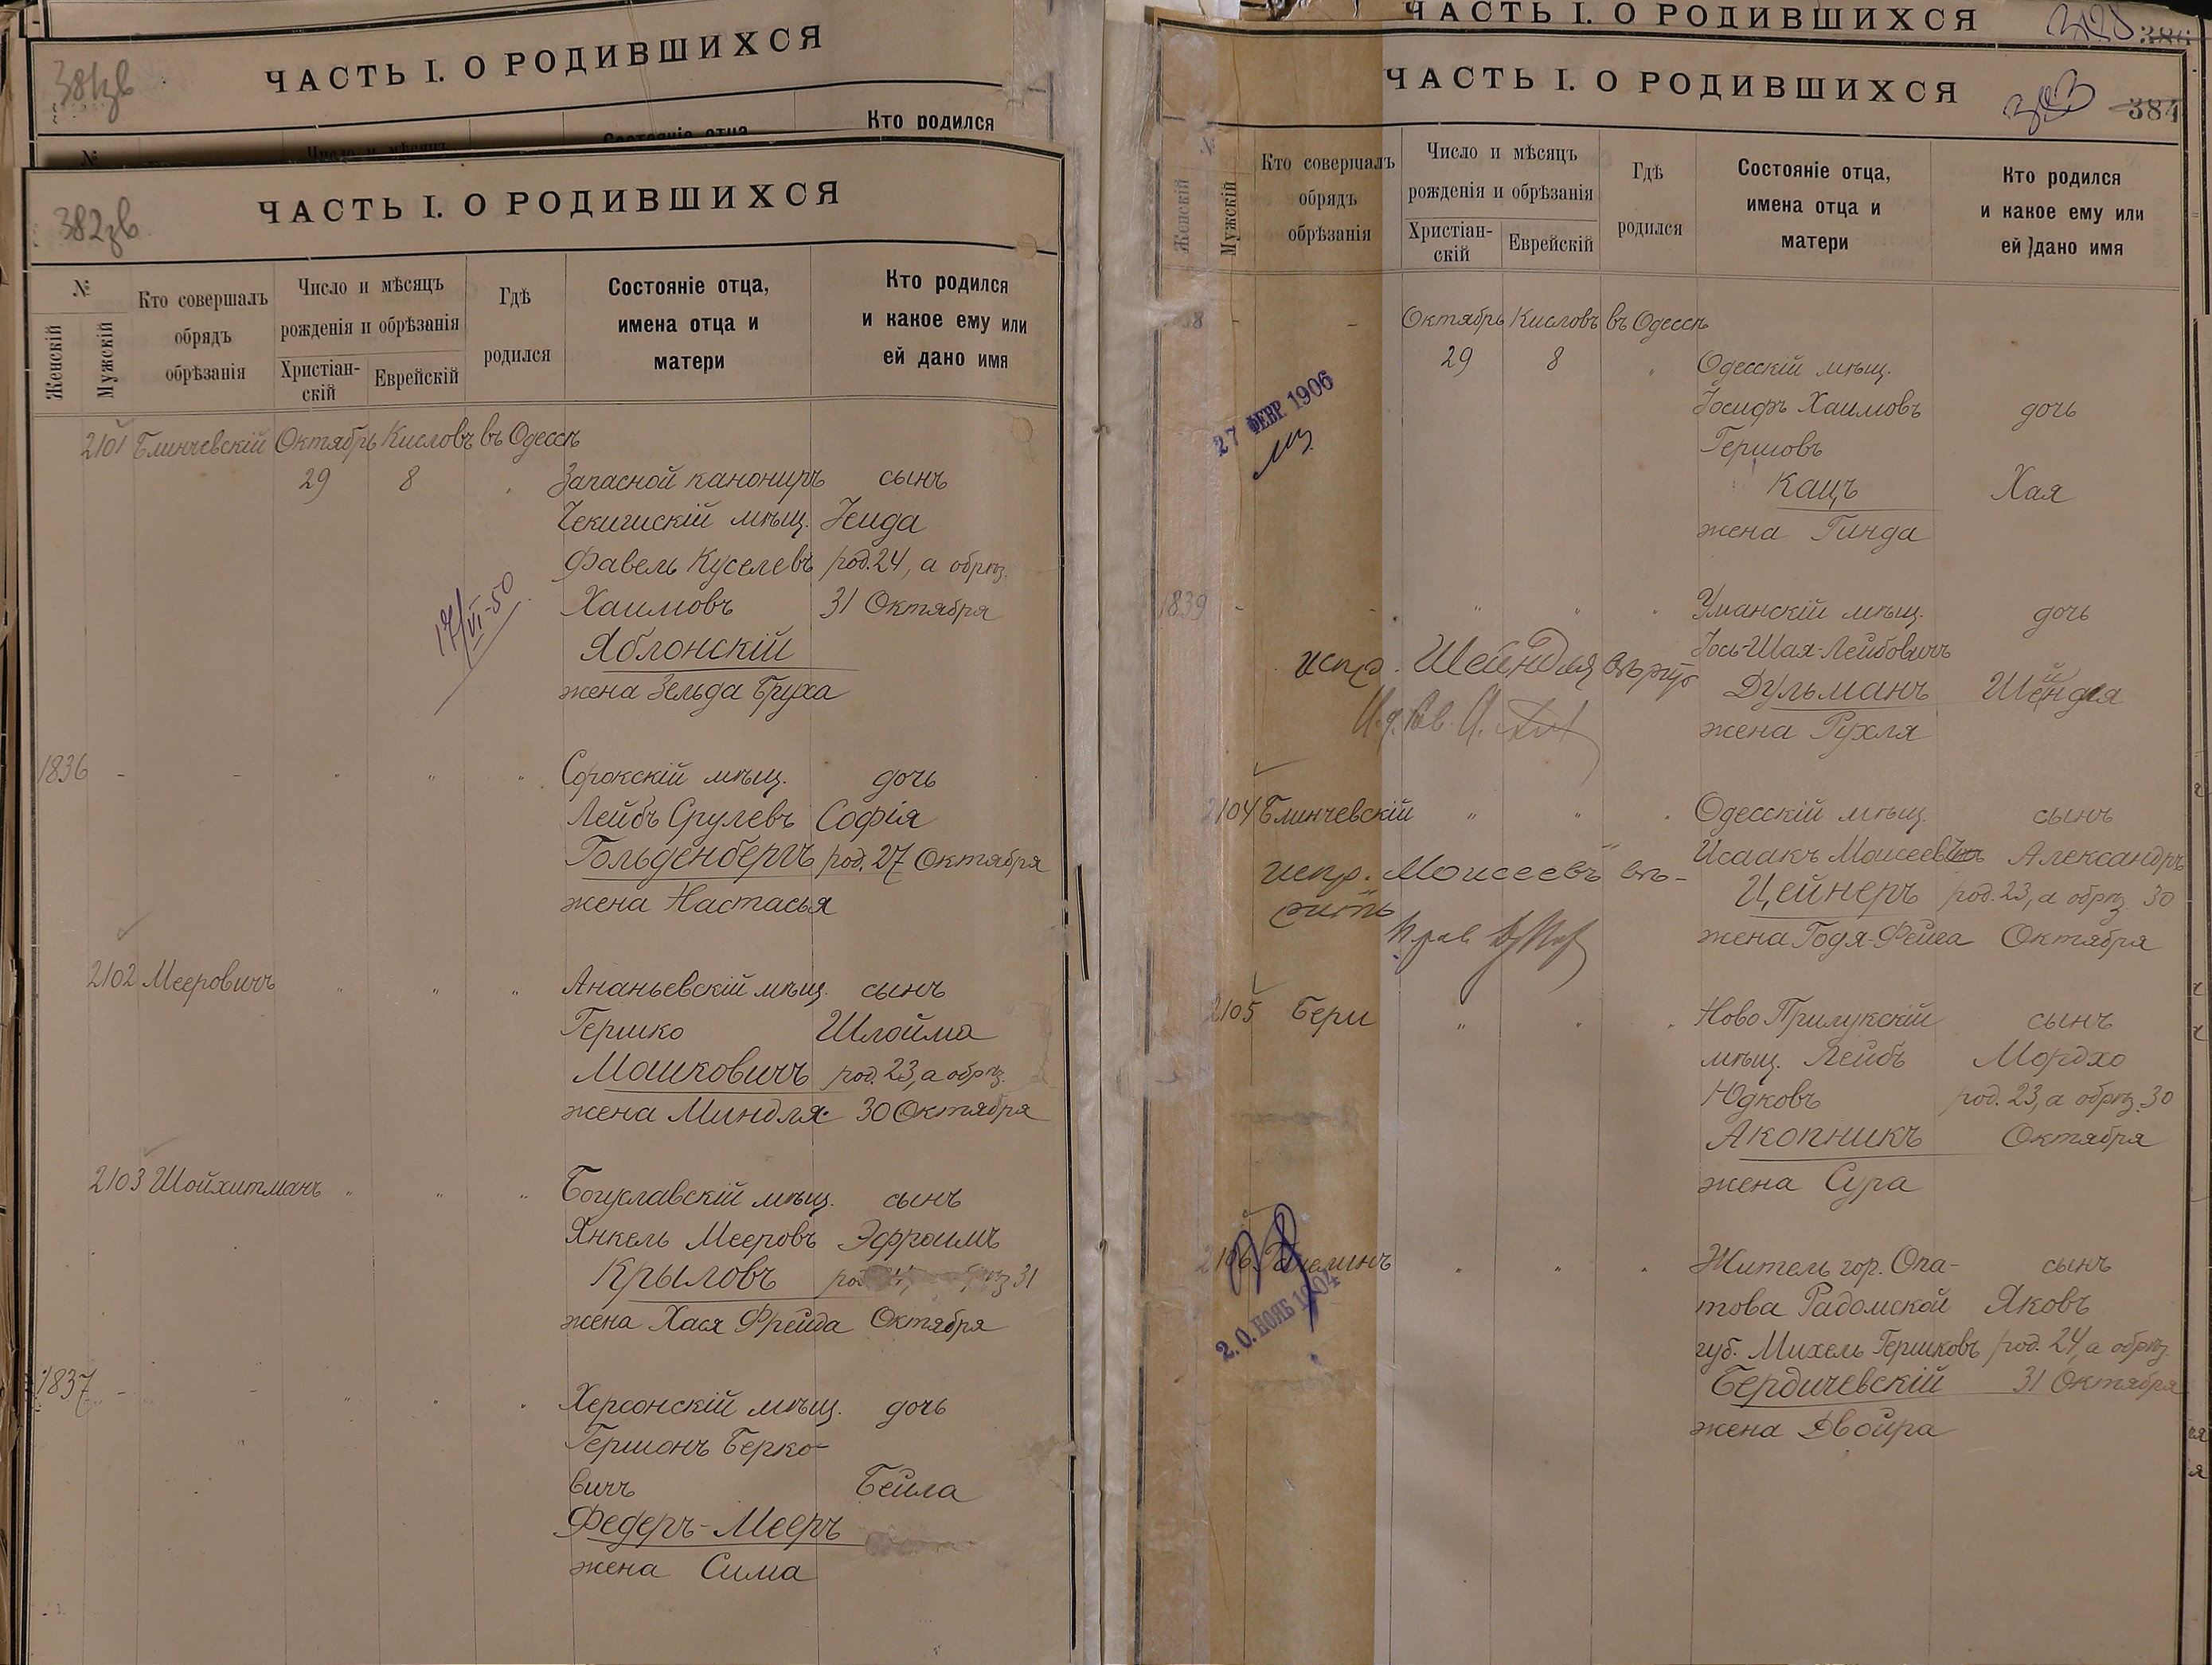 ЧАСТЬ I. О РОДИВШИХСЯ
381зв
№
Число и мѣсяцъ
Состояніе отца
Кто родился
ЧАСТЬ I. О РОДИВШИХСЯ
382зв.
№
Женскій
Мужскій
Кто совершалъ
обрядъ
обрѣзанія
Число и мѣсяцъ
рожденія и обрѣзанія
Христіан-
скій
Еврейскій
Гдѣ
родился
Состояніе отца,
имена отца и
матери
Кто родился
и какое ему или
ей дано имя
2101 Блинчевскій Октябрь Кисловъ въ Одессѣ
29 8 " Запасной канониръ сынъ
Чекишскій мѣщ.
Фавель Куселевъ род. 24, а обрѣз.
Хаимовъ 31 Октября
Яблонскій
жена Зельда Бруха
17/VI-50
1836 - - " " " Сорокскій мѣщ. дочь
Лейбъ Срулевъ Софія
Гольденбергъ род. 27 Октября
жена Настасья
2102 Мееровичъ " " " Ананьевскій мѣщ. сынъ
Гершко Шлойма
Мошковичъ род. 23, а обрѣз.
жена Миндля 30 Октября
2103 Шойхитманъ " " " Богуславскій мѣщ. сынъ
Янкель Мееровъ Эфроимъ
Крыловъ род. обрѣз 31
жена Хася Фрейда Октября
1837 - - " " " Херсонскій мѣщ. дочь
Гершонъ Берко-
вичъ Бейла
Федеръ-Мееръ
жена Сима
ЧАСТЬ I. О РОДИВШИХСЯ
386
ЧАСТЬ I. О РОДИВШИХСЯ
383 384
№
Женскій
Мужскій
Кто совершалъ
обрядъ
обрѣзанія
Число и мѣсяцъ
рожденія и обрѣзанія
Христіан-
скій
Еврейскій
Гдѣ
родился
Состояніе отца,
имена отца и
матери
Кто родился
и какое ему или
ей дано имя
38 - - Октябрь Кисловъ въ Одессѣ
29 8 " Одесскій мѣщ.
Іосифъ Хаимовъ дочь
Гершовъ
Кацъ Хая
жена Гинда
27 ФЕВР 1906
1839 - - " " " Уманскій мѣщ. дочь
Іось-Шая-Лейбовичъ
испр. Шейндля вѣрно
Дульманъ Шейндля
жена Рухля
2104 Блинчевскій " " " Одесскій мѣщ. сынъ
Исаакъ Моисеевъ Александръ
испр. Моисеевъ вѣ-
рить
Цейнеръ род. 23, а обрѣз. 30
жена Годя-Фейга Октября
2105 Бери " " " Ново Прилукскій сынъ
мѣщ. Лейбъ Мордхо
Юдковъ род. 23, а обрѣз. 30
Акопникъ Октября
жена Сура
2106 " " " Житель гор. Опа-
сынъ
това Радомской Яковъ
губ. Михель Гершковъ род. 24, а обрѣз.
Бердичевскій 31 Октября
жена Двойра
2.0. НОЯБ 1904